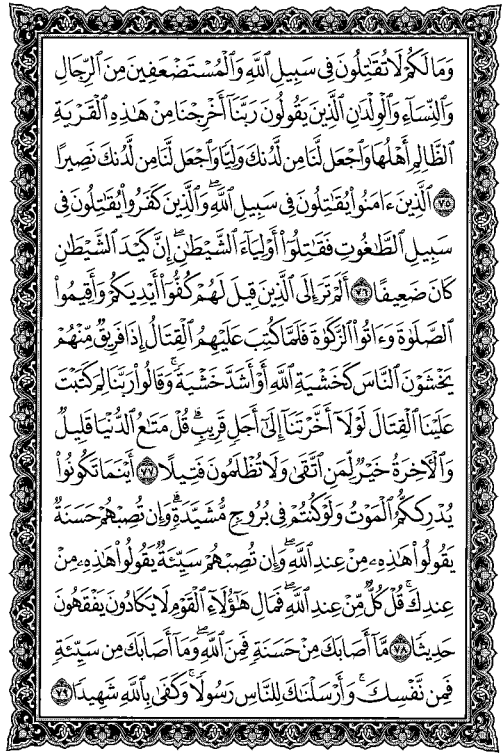 وَمَا لَكُمْ لَا تُقَٰتِلُونَ فِى سَبِيلِ ٱللَّهِ وَٱلْمُسْتَضْعَفِينَ مِنَ ٱلرِّجَالِ
وَٱلنِّسَآءِ وَٱلْوِلْدَٰنِ ٱلَّذِينَ يَقُولُونَ رَبَّنَآ أَخْرِجْنَا مِنْ هَٰذِهِ ٱلْقَرْيَةِ
ٱلظَّالِمِ أَهْلُهَا وَٱجْعَل لَّنَا مِن لَّدُنكَ وَلِيًّا وَٱجْعَل لَّنَا مِن لَّدُنكَ نَصِيرًا
٧٥ ٱلَّذِينَ ءَامَنُوا۟ يُقَٰتِلُونَ فِى سَبِيلِ ٱللَّهِ ۖ وَٱلَّذِينَ كَفَرُوا۟ يُقَٰتِلُونَ فِى
سَبِيلِ ٱلطَّٰغُوتِ فَقَٰتِلُوٓا۟ أَوْلِيَآءَ ٱلشَّيْطَٰنِ ۖ إِنَّ كَيْدَ ٱلشَّيْطَٰنِ
كَانَ ضَعِيفًا ٧٦ أَلَمْ تَرَ إِلَى ٱلَّذِينَ قِيلَ لَهُمْ كُفُّوٓا۟ أَيْدِيَكُمْ وَأَقِيمُوا۟
ٱلصَّلَوٰةَ وَءَاتُوا۟ ٱلزَّكَوٰةَ فَلَمَّا كُتِبَ عَلَيْهِمُ ٱلْقِتَالُ إِذَا فَرِيقٌ مِّنْهُمْ
يَخْشَوْنَ ٱلنَّاسَ كَخَشْيَةِ ٱللَّهِ أَوْ أَشَدَّ خَشْيَةً ۚ وَقَالُوا۟ رَبَّنَا لِمَ كَتَبْتَ
عَلَيْنَا ٱلْقِتَالَ لَوْلَآ أَخَّرْتَنَآ إِلَىٰٓ أَجَلٍ قَرِيبٍ ۗ قُلْ مَتَٰعُ ٱلدُّنْيَا قَلِيلٌ
وَٱلْأَخِرَةُ خَيْرٌ لِّمَنِ ٱتَّقَىٰ وَلَا تُظْلَمُونَ فَتِيلًا ٧٧ أَيْنَمَا تَكُونُوا۟
يُدْرِككُّمُ ٱلْمَوْتُ وَلَوْ كُنتُمْ فِى بُرُوجٍ مُّشَيَّدَةٍ ۗ وَإِن تُصِبْهُمْ حَسَنَةٌ
يَقُولُوا۟ هَٰذِهِۦ مِنْ عِندِ ٱللَّهِ ۖ وَإِن تُصِبْهُمْ سَيِّئَةٌ يَقُولُوا۟ هَٰذِهِۦ مِنْ
عِندِكَ ۚ قُلْ كُلٌّ مِّنْ عِندِ ٱللَّهِ ۖ فَمَالِ هَٰٓؤُلَآءِ ٱلْقَوْمِ لَا يَكَادُونَ يَفْقَهُونَ
حَدِيثًا ٧٨ مَّآ أَصَابَكَ مِنْ حَسَنَةٍ فَمِنَ ٱللَّهِ ۖ وَمَآ أَصَابَكَ مِن سَيِّئَةٍ
فَمِن نَّفْسِكَ ۚ وَأَرْسَلْنَٰكَ لِلنَّاسِ رَسُولًا ۚ وَكَفَىٰ بِٱللَّهِ شَهِيدًا ٧٩